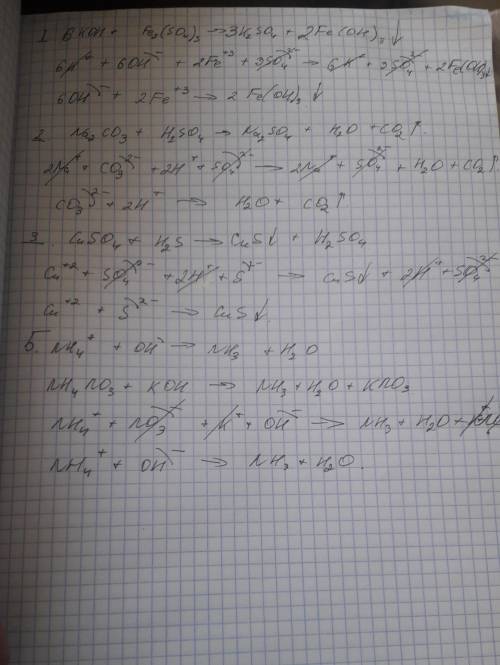 1. 6KOH + Fe₂(SO₄)₃ → 3K₂SO₄ + 2Fe(OH)₃↓
6K⁺ + 6OH⁻ + 2Fe⁺³ + 3SO₄²⁻ → 6K⁺ + 3SO₄²⁻ + 2Fe(OH)₃↓
6OH⁻ + 2Fe⁺³ → 2Fe(OH)₃↓
2. Na₂CO₃ + H₂SO₄ → Na₂SO₄ + H₂O + CO₂↑.
2Na⁺ + CO₃²⁻ + 2H⁺ + SO₄²⁻ → 2Na⁺ + SO₄²⁻ + H₂O + CO₂↑
CO₃²⁻ + 2H⁺ → H₂O + CO₂↑
3. CuSO₄ + H₂S → CuS↓ + H₂SO₄
Cu⁺² + SO₄²⁻ + 2H⁺ + S²⁻ → CuS↓ + 2H⁺ + SO₄²⁻
Cu⁺² + S²⁻ → CuS↓
Б. NH₄⁺ + OH⁻ → NH₃ + H₂O
NH₄NO₃ + KOH → NH₃ + H₂O + KNO₃
NH₄⁺ + NO₃⁻ + K⁺ + OH⁻ → NH₃ + H₂O +
NH₄⁺ + OH⁻ → NH₃ + H₂O.